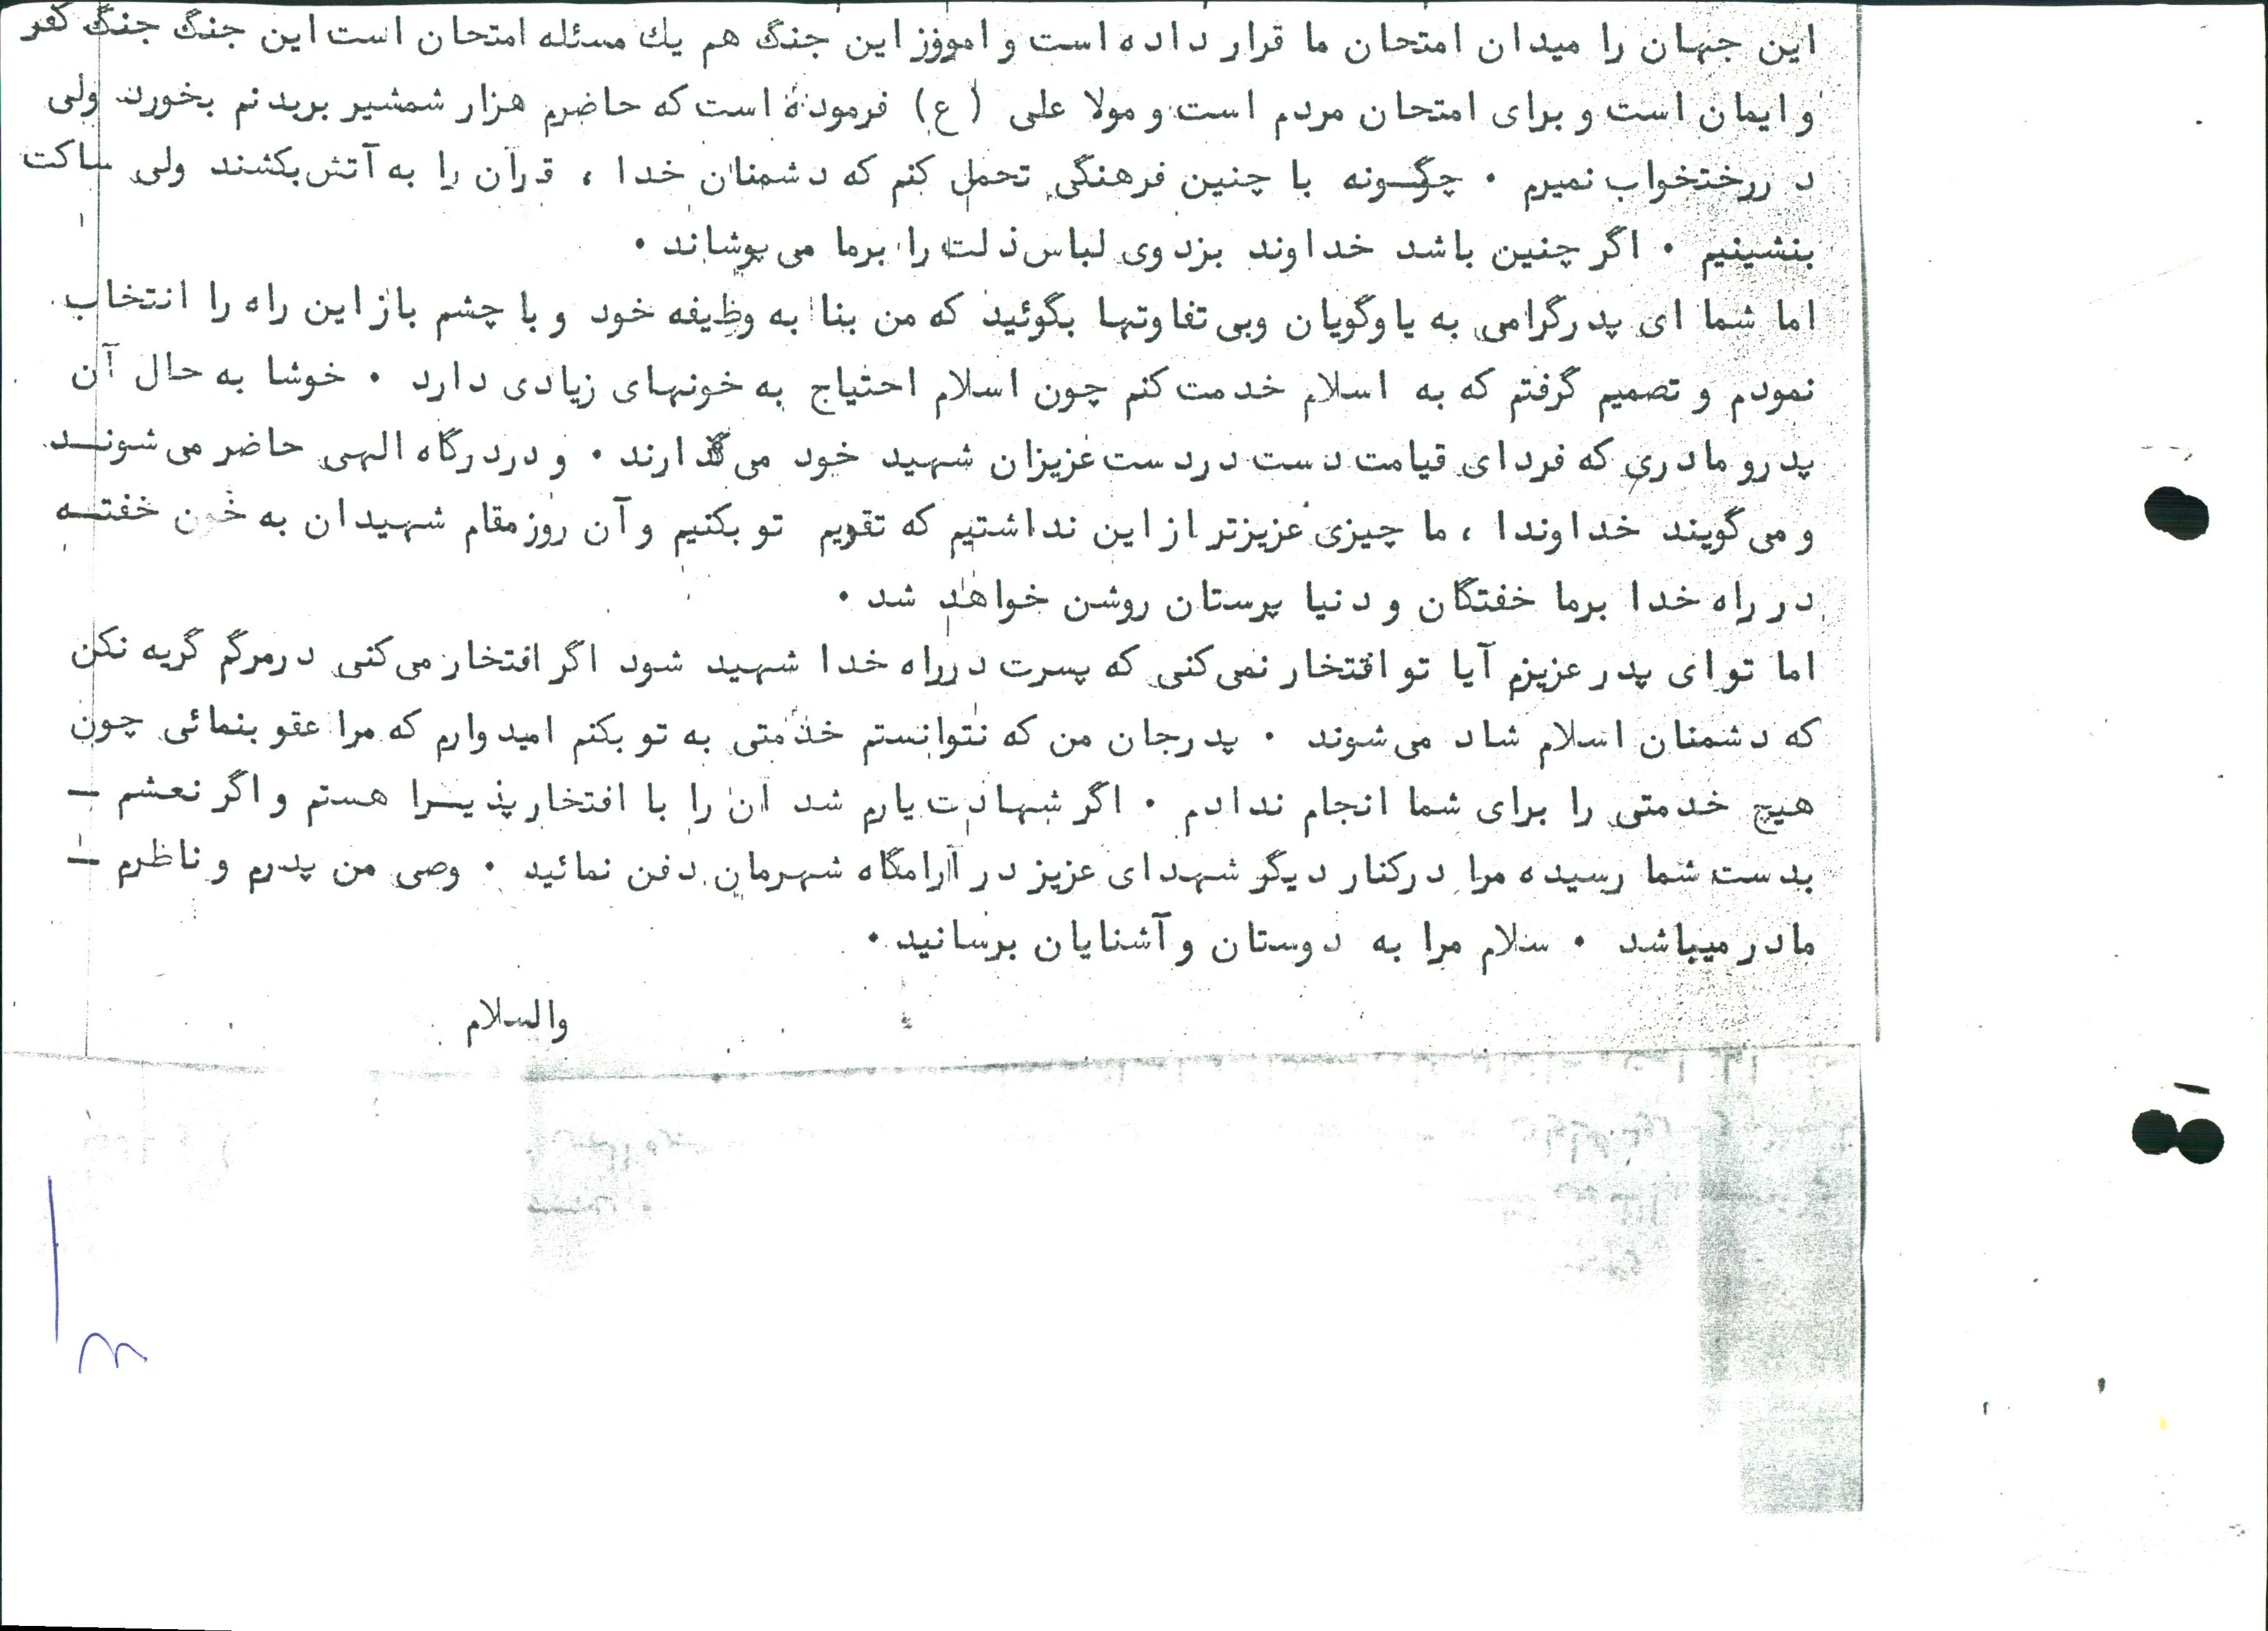 این جهان را میدان امتحان ما قرار داده است و امروز این جنگ هم یك مسئله امتحان است این جنگ جنگ کفر
و ایمان است و برای امتحان مردم است و مولا علی (ع) فرموده است که حاضرم هزار شمشیر بربدنم بخورد ولی
در رختخواب نمیرم . چگونه با چنین فرهنگی تحمل کنم که دشمنان خدا ، قرآن را به آتش بکشند ولی ساکت
بنشینیم . اگر چنین باشد خداوند بزدوی لباس ذلت را برما می پوشاند .
اما شما ای پدرگرامی به یاوگویان وبی تفاوتها بگوئید که من بنا به وظیفه خود و با چشم باز این راه را انتخاب
نمودم و تصمیم گرفتم که به اسلام خدمت کنم چون اسلام احتیاج به خونهای زیادی دارد . خوشا به حال آن
پدرو مادری که فردای قیامت دست دردست عزیزان شهید خود می گذارند . و دردرگاه الهی حاضر می شوند
و می گویند خداوندا ، ما چیزی عزیزتر از این نداشتیم که تقویم تو بکنیم و آن روز مقام شهیدان به خون خفته
در راه خدا برما خفتگان و دنیا پرستان روشن خواهد شد .
اما تو ای پدر عزیزم آیا تو افتخار نمی کنی که پسرت درراه خدا شهید شود اگر افتخار می کنی درمرگم گریه نکن
که دشمنان اسلام شاد می شوند . پدرجان من که نتوانستم خدمتی به تو بکنم امیدوارم که مرا عقو بنمائی چون
هیچ خدمتی را برای شما انجام ندادم . اگر شهادت یارم شد آن را با افتخار پذیرا هستم و اگر نعشم –
بدست شما رسیده مرا درکنار دیگر شهدای عزیز در آرامگاه شهرمان دفن نمائید . وصی من پدرم و ناظرم –
مادر میباشد . سلام مرا به دوستان و آشنایان برسانید .
والسلام